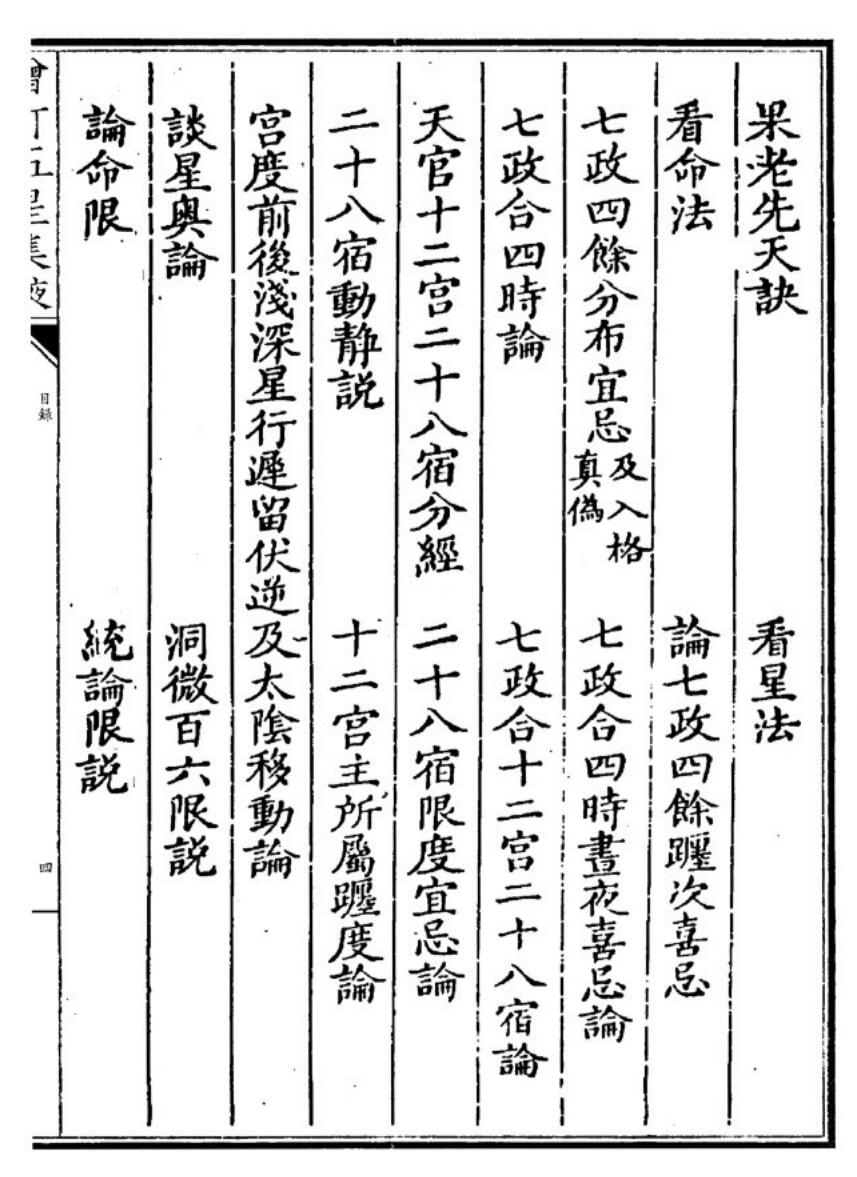 果老先天訣　看星法
看命法　論七政四餘躔次喜忌
七政四餘分布宜忌及入格真偽　七政合四時晝夜喜忌論
七政合四時論　七政合十二宮二十八宿論
天官十二宮二十八宿分經　二十八宿限度宜忌論
二十八宿動靜説　十二宮主所屬躔度論
宮度前後淺深星行遲留伏逆及太陰移動論
談星奧論　洞微百六限説
論命限　統論限説
目錄
四